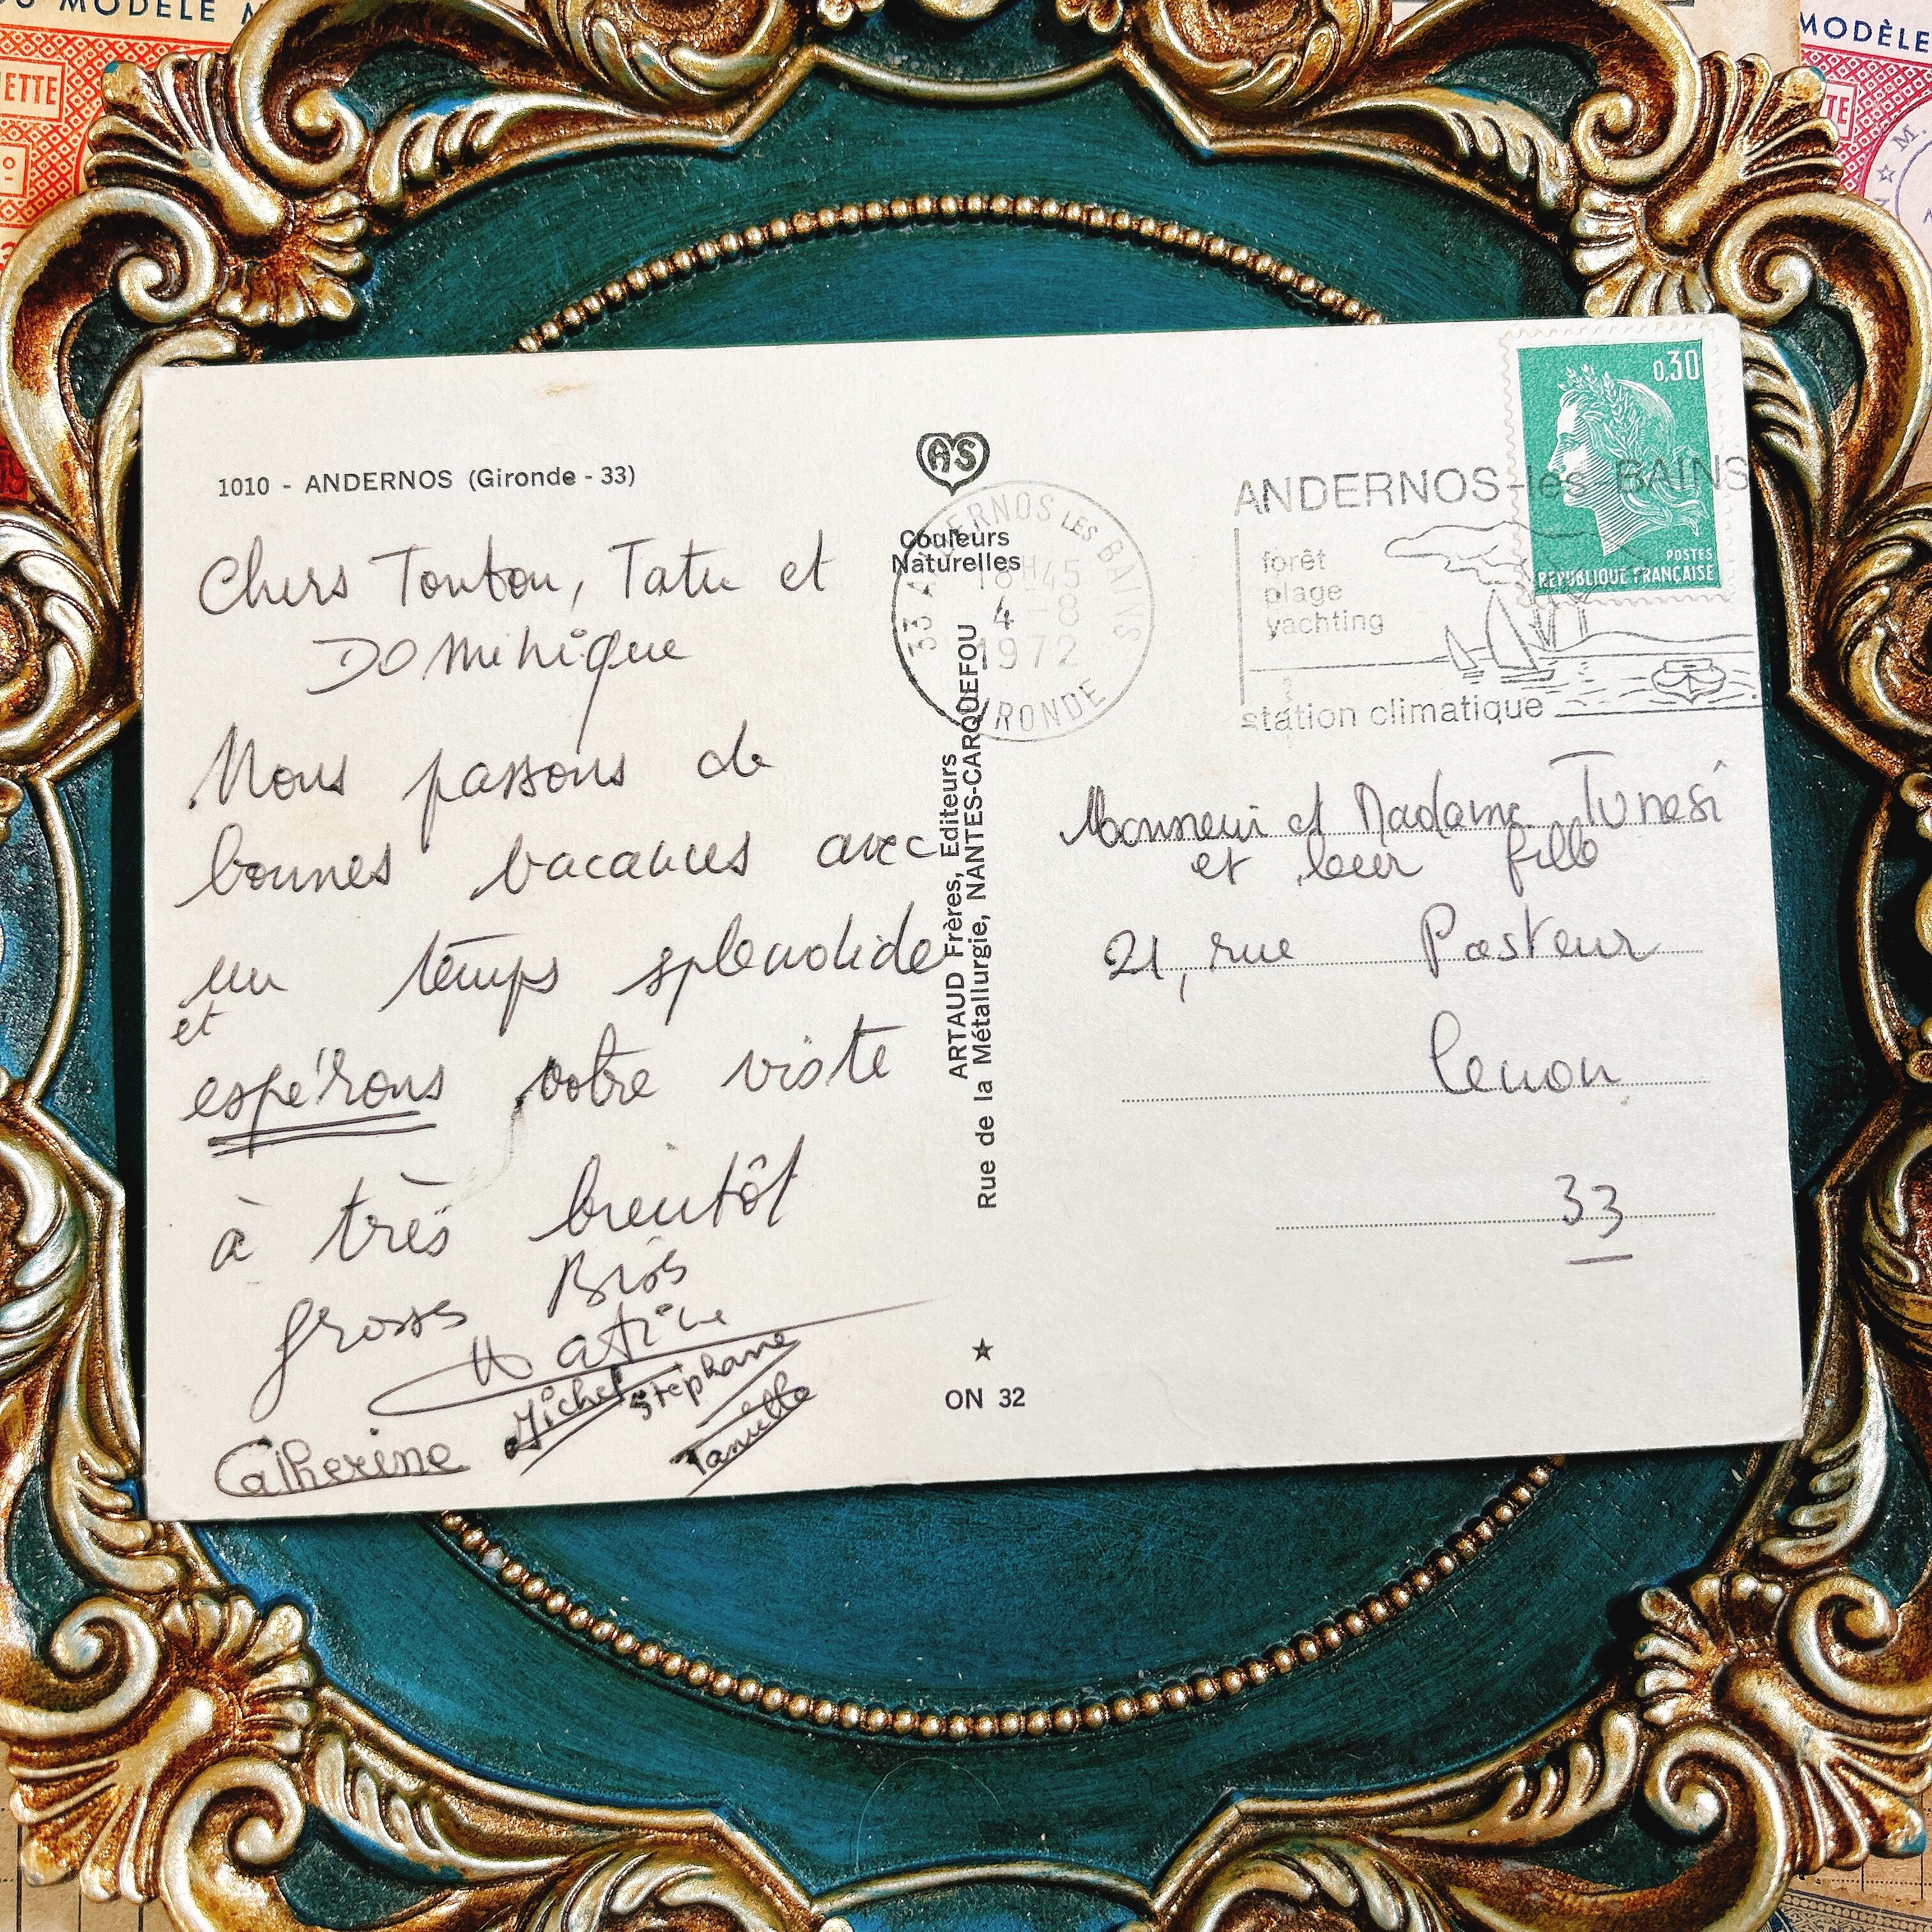 MODÈLE
MODÈLE
ETTE
1010 - ANDERNOS (Gironde - 33)
AS
Couleurs
Naturelles
Chers Tonton, Tatie et
Dominique
Nous passons de
bonnes vacances avec
un temps splendide
et
espérons votre visite
à très bientôt
grosses Bises
Michel Stéphane
Catherine
ARTAUD Frères, Editeurs
Rue de la Métallurgie, NANTES-CARQUEFOU
★
ON 32
33 ANDERNOS LES BAINS
18H45
4-8
1972
GIRONDE
ANDERNOS-les BAINS
forêt
plage
yachting
station climatique
0,30
POSTES
REPUBLIQUE FRANÇAISE
Monsieur et Madame Tunesi
et leur fille
21, rue Pasteur
Cenon
33